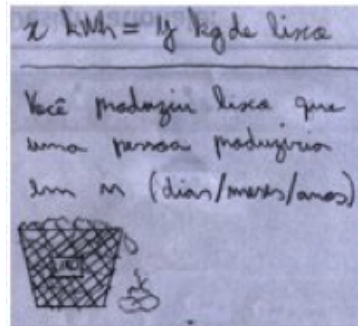 x kWh = y kg de lixo
Você produziu lixo que
uma pessoa produziria
em n (dias/meses/anos)